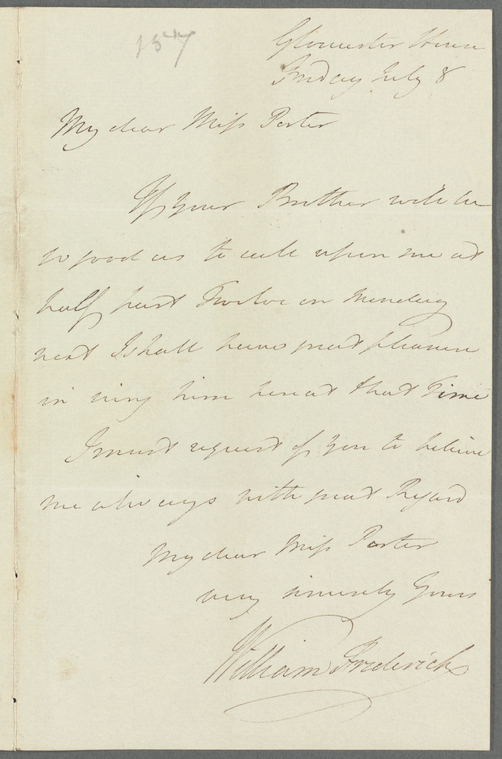 157
Gloucester House
Friday July 8
My dear Miss Porter
If your Brother will be
so good as to call upon me at
half past Twelve on Monday
next I shall have great pleasure
in seeing him here at that Time
I must request of you to believe
me always with great Regard
My dear Miss Porter
very sincerely Yours
William Frederick